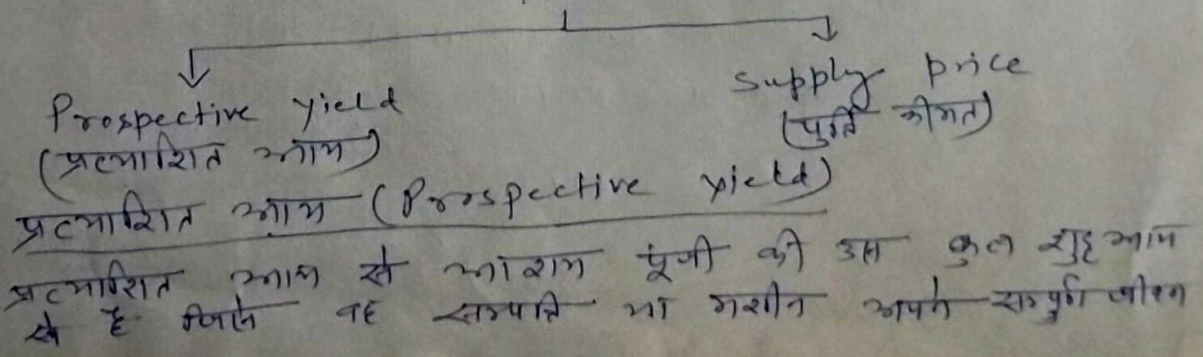 Prospective yield
supply price
(प्रत्याशित आय)
(पुर्ति कीमत)
प्रत्याशित आय (Prospective yield)
प्रत्याशित आय से आशय पूंजी की उस कुल शुद्ध आय
से है जिसे वह सम्पत्ति या मशीन अपने सम्पुर्ण जीवन